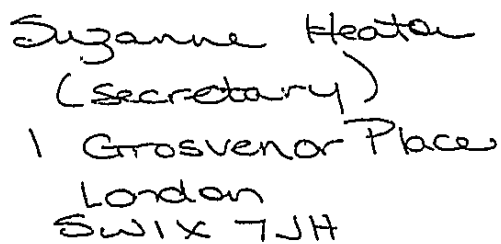 Suzanne Heaton
(secretary)
1 Grosvenor Place
London
SW1X 7JH